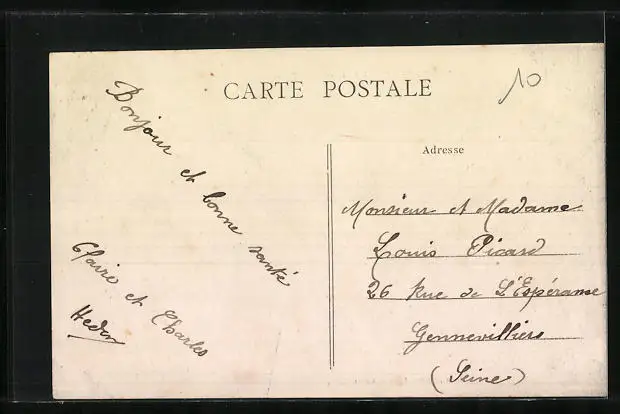 CARTE POSTALE
10
Bonjour et bonne santé
Claire et Charles
Hedin
Adresse
Monsieur et Madame
Louis Picard
26 Rue de L'Espérance
Gennevilliers
(Seine)